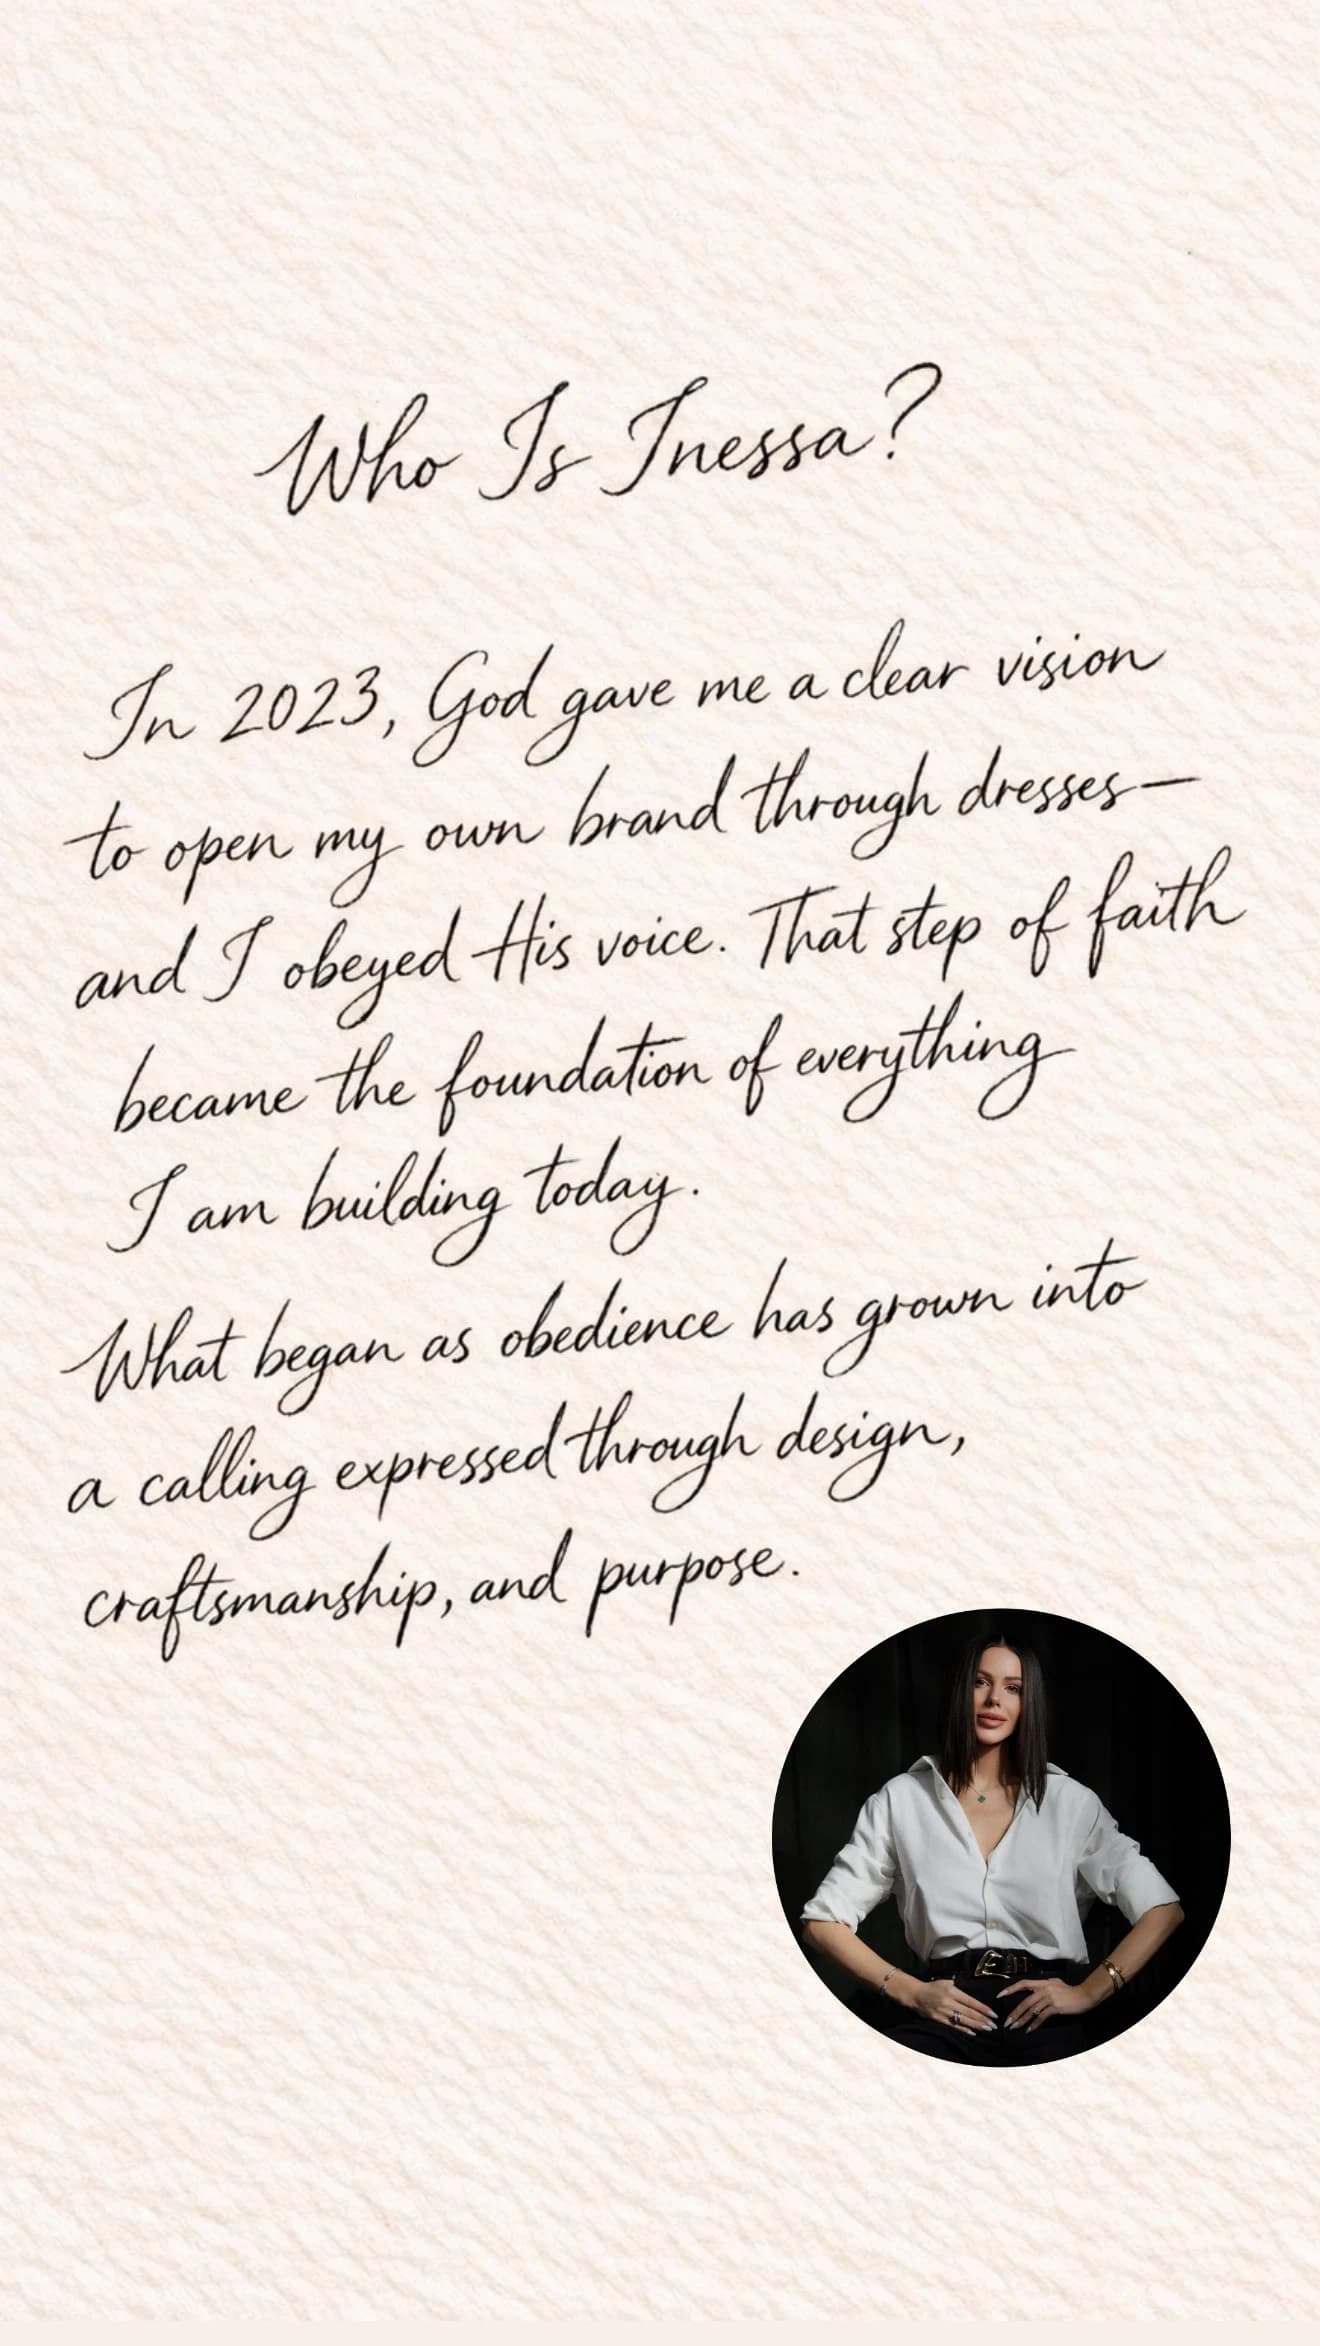 Who Is Inessa?
In 2023, God gave me a clear vision
to open my own brand through dresses—
and I obeyed His voice. That step of faith
became the foundation of everything
I am building today.
What began as obedience has grown into
a calling expressed through design,
craftsmanship, and purpose.